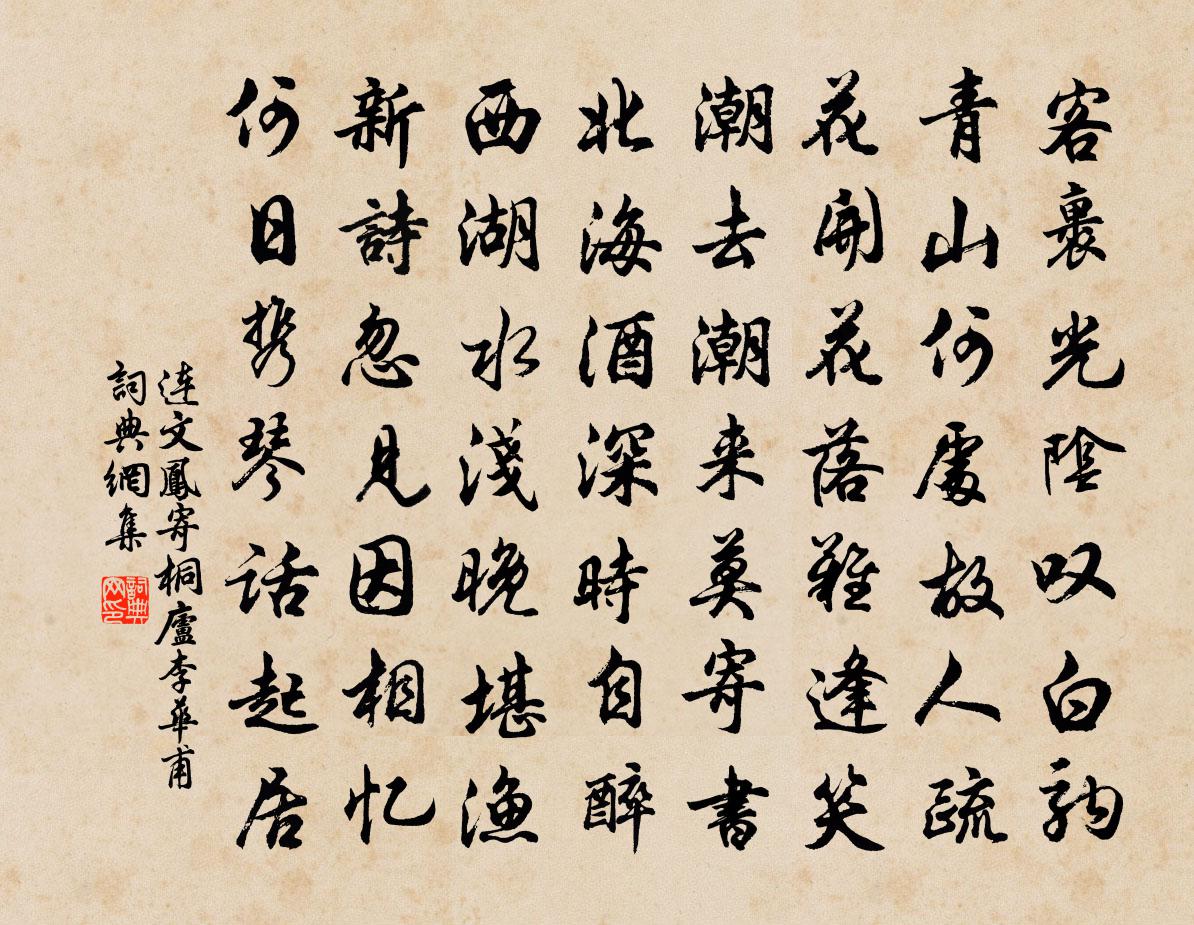 客裏光陰叹白驹
青山何處故人疏
花開花落難逢笑
潮去潮来莫寄書
北海酒深時自醉
西湖水淺晚堪渔
新詩忽見因相忆
何日携琴話起居
連文鳳寄桐廬李華甫
詞典網集
詞典网印